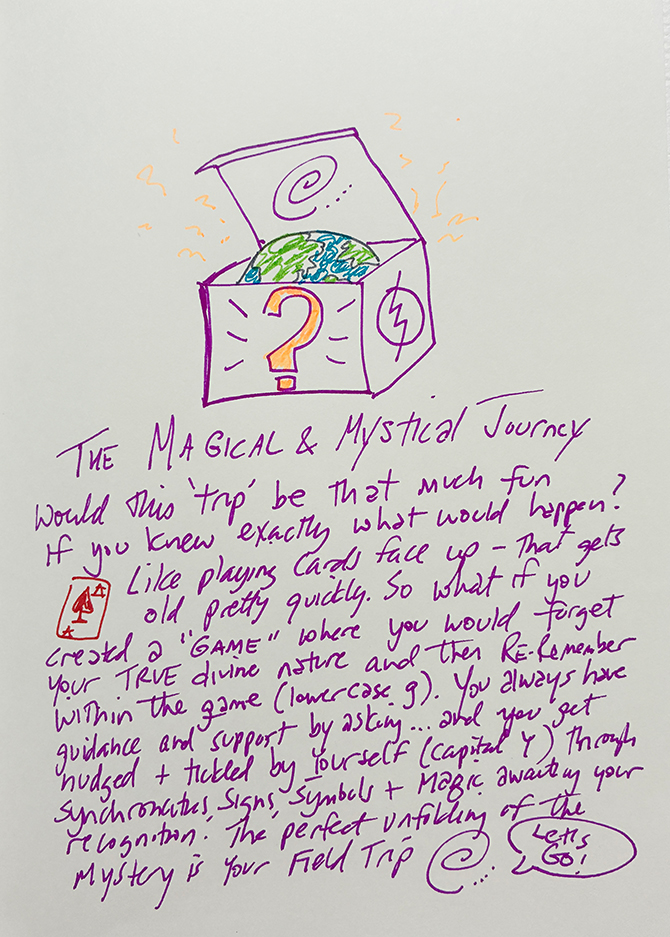 ?
THE MAGICAL & Mystical Journey
Would this 'trip' be that much fun
if you knew exactly what would happen?
Like playing cards face up - that gets
A
A
old pretty quickly. So what if you
created a "GAME" where you would forget
your TRUE divine nature and then RE-Remember
within the game (lowercase g). You always have
guidance and support by asking... and you get
nudged + tickled by Yourself (capital Y) through
synchronicities, signs, symbols + Magic awaiting your
recognition. The perfect unfolding of the
Mystery is Your Field Trip
Let's
Go!